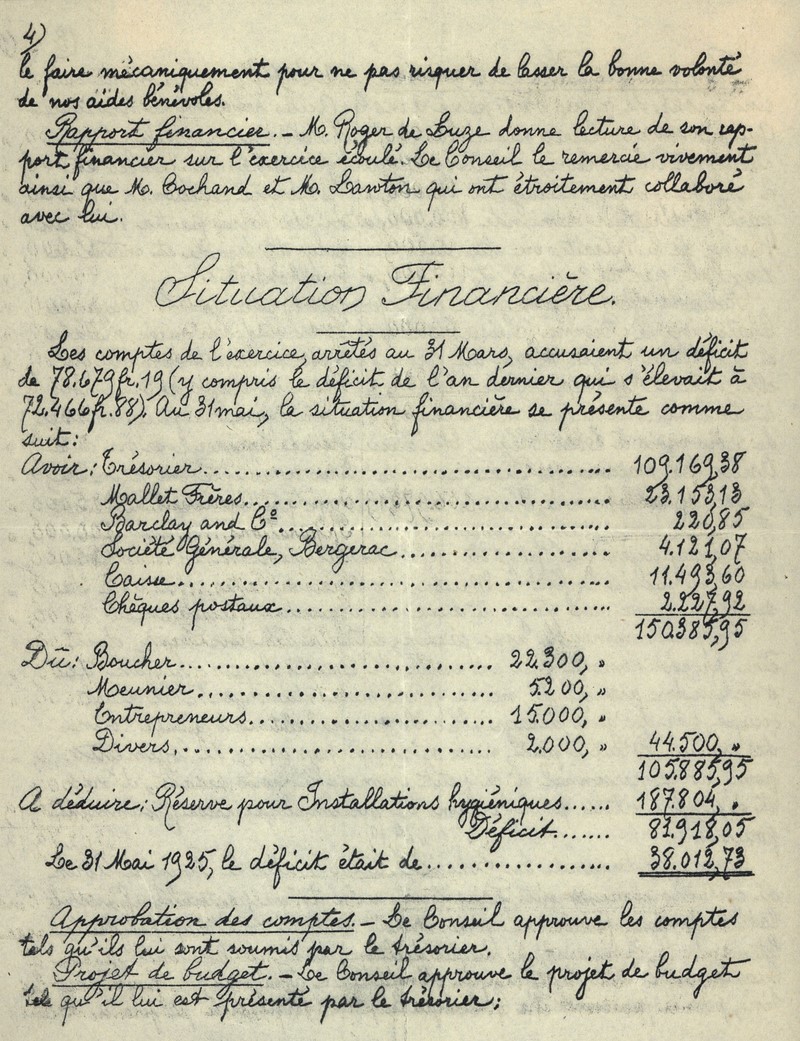 4)
le faire mécaniquement pour ne pas risquer de lasser la bonne volonté
de nos aides bénévoles.
Rapport financier. – M. Roger de Luze donne lecture de son rap-
port financier sur l'exercice écoulé. Le Conseil le remercie vivement
ainsi que M. Cochand et M. Lawton qui ont étroitement collaboré
avec lui.
Situation Financière.
Les comptes de l'exercice, arrêtés au 31 Mars, accusaient un déficit
de 78.679fr.19 (y compris le déficit de l'an dernier qui s'élevait à
72.466fr.88). Au 31 mai, la situation financière se présente comme
suit:
Avoir: Trésorier........................................ 109.169,38
Mallet Frères........................................ 23.153,13
Barclay and Cº........................................ 220,85
Société Générale, Bergerac........................ 4.121,07
Caisse........................................ 11.493,60
Chèques postaux........................................ 2.227,92
150.385,95
Dû: Boucher.............................. 22.300, "
Meunier.............................. 5.200, "
Entrepreneurs........................ 15.000, "
Divers.............................. 2.000, " 44.500, "
105.885,95
A déduire: Réserve pour Installations hygiéniques...... 187.804, .
Déficit....... 81.918,05
Le 31 Mai 1925, le déficit était de.................. 38.012,73
Approbation des comptes. – Le Conseil approuve les comptes
tels qu'ils lui sont soumis par le trésorier.
Projet de budget. – Le Conseil approuve le projet de budget
tel qu'il lui est présenté par le trésorier;